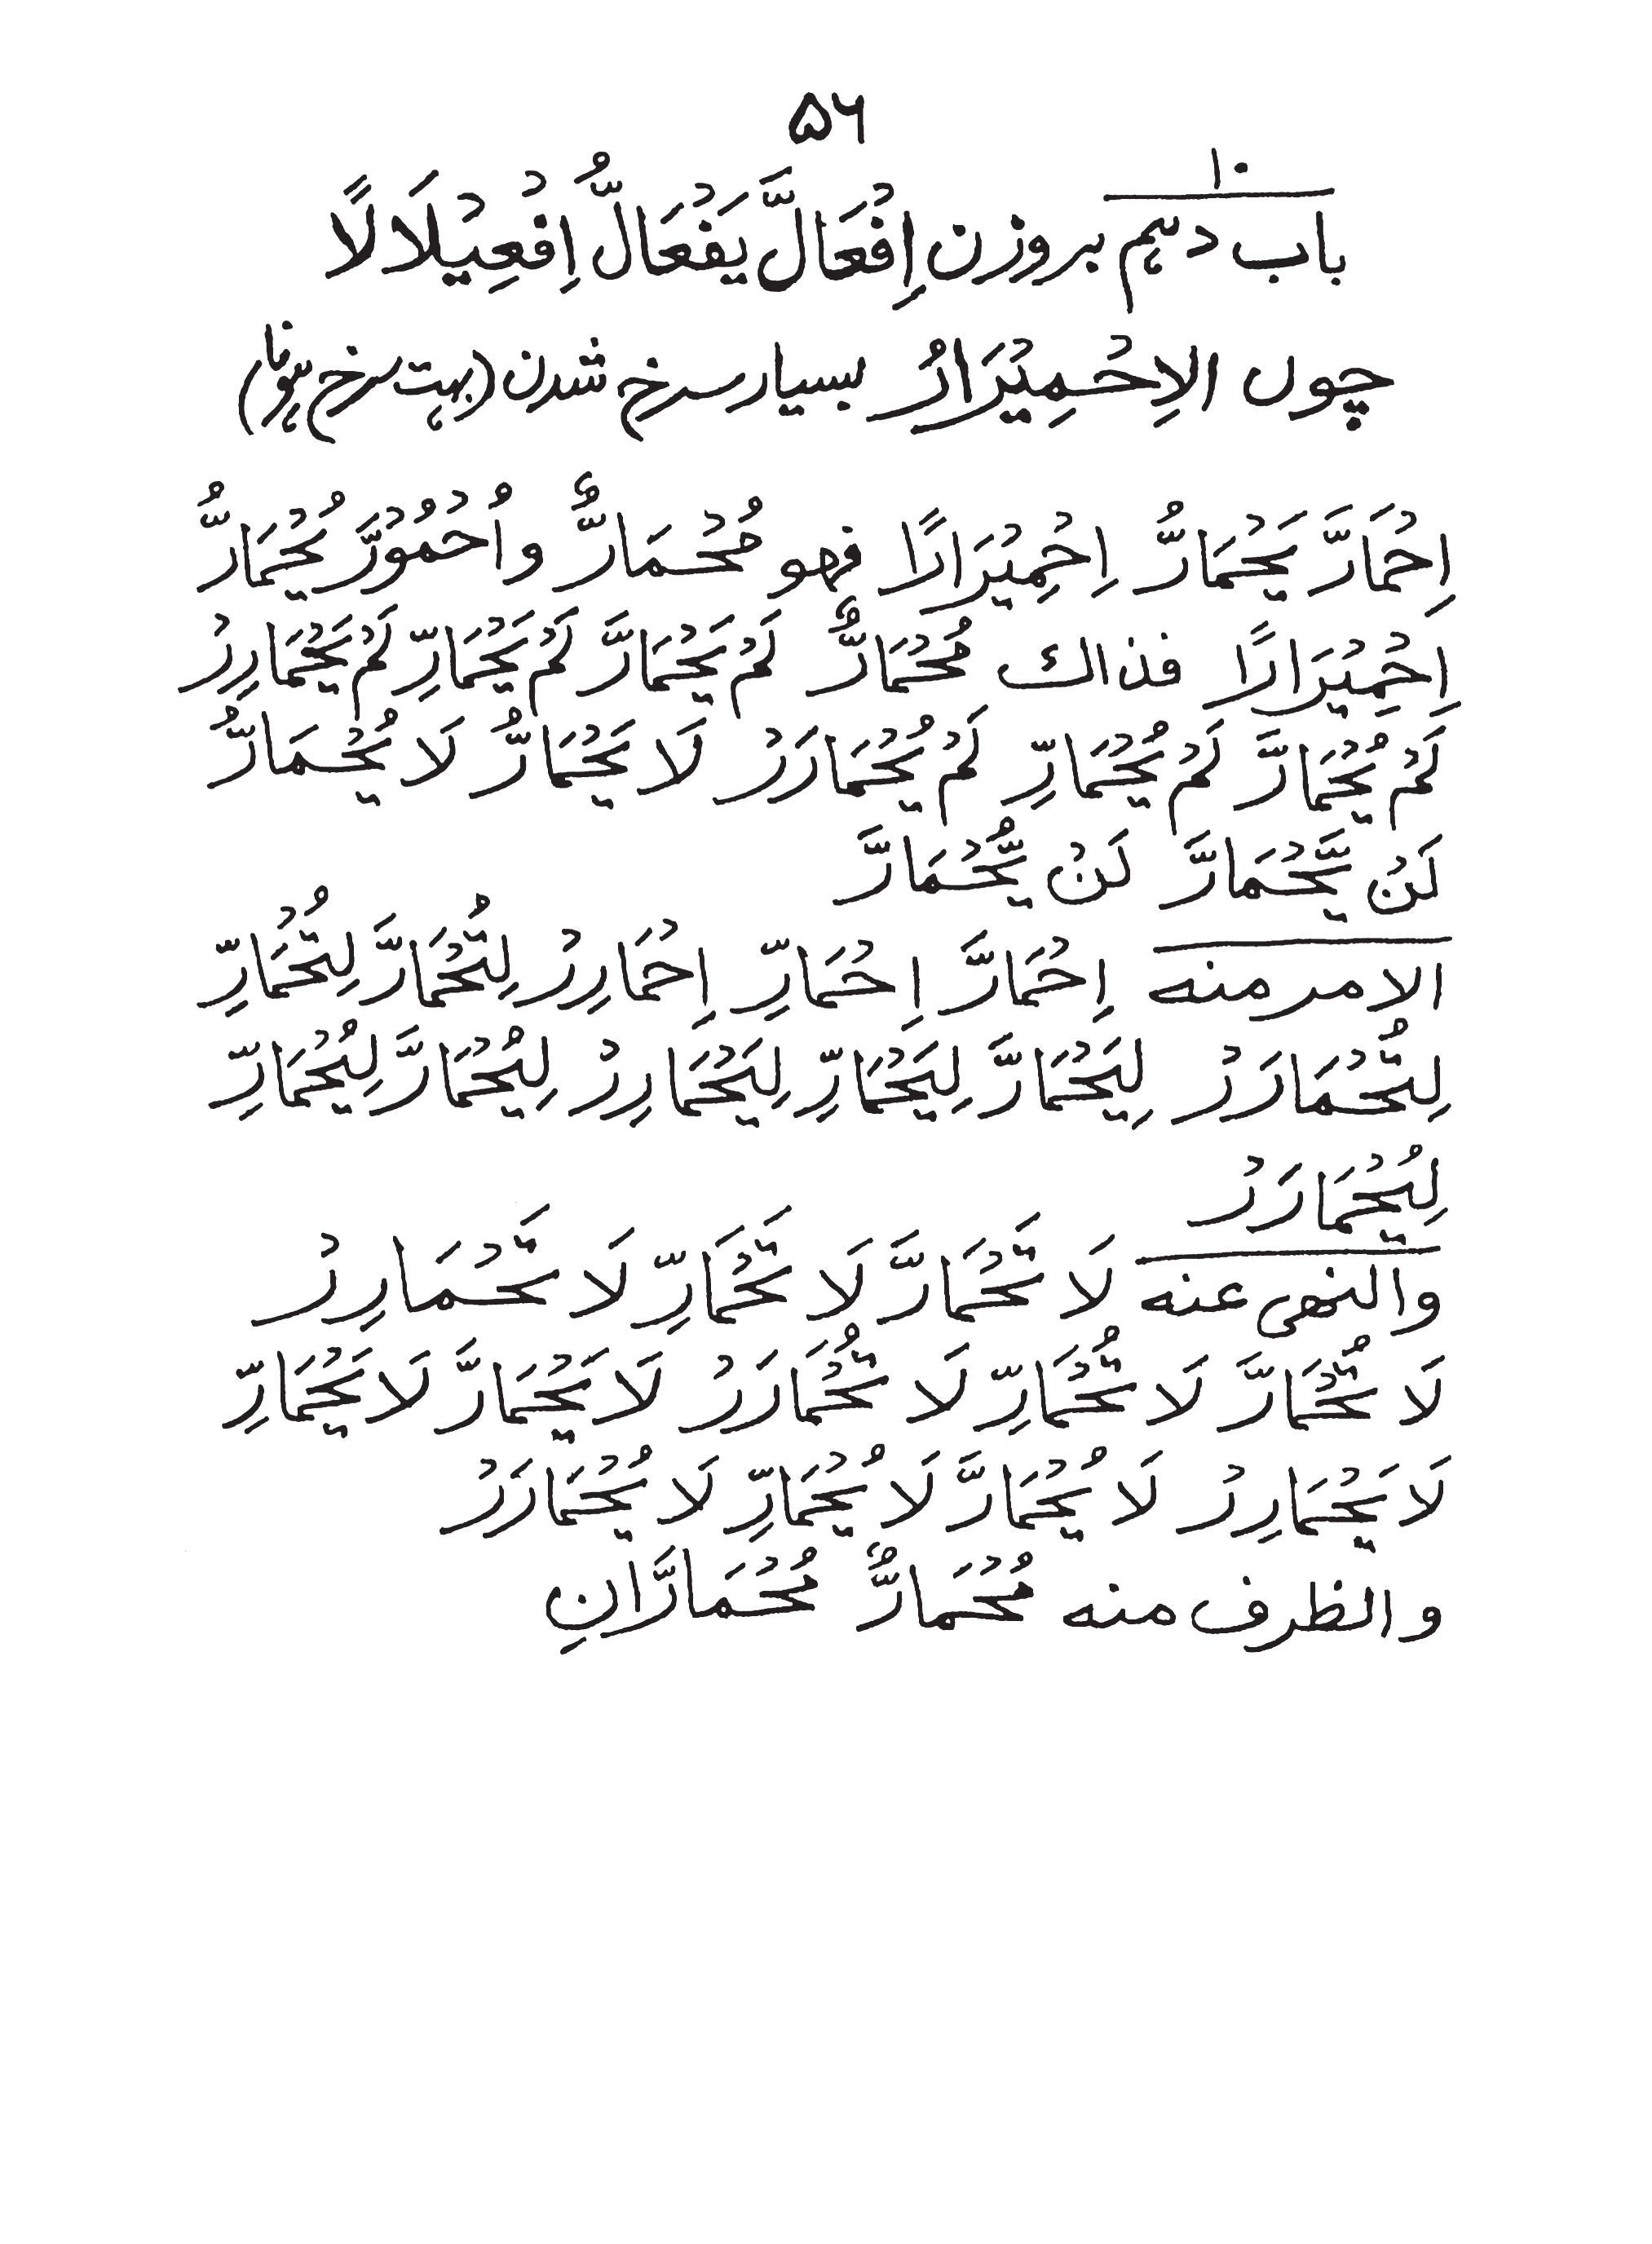 ۵۶
۱۰
باب دہم بروزن اِفْعَالَّ یَفْعَالُّ اِفْعِیْلَالًا
چوں الاِحْمِیْرَارُ بسیار سرخ شدن (بہت سرخ ہونا)
اِحْمَارَّ یَحْمَارُّ اِحْمِیْرَارًا فهو مُحْمَارٌّ واُحْمُوْرَّ یُحْمَارُّ
اِحْمِیْرَارًا فذاك مُحْمَارٌّ لَمْ یَحْمَارَّ لَمْ یَحْمَارِّ لَمْ یَحْمَارِرْ
لَمْ یُحْمَارَّ لَمْ یُحْمَارِّ لَمْ یُحْمَارَرْ لَا یَحْمَارُّ لَا یُحْمَارُّ
لَنْ یَّحْمَارَّ لَنْ یُّحْمَارَّ
الامر منه اِحْمَارَّ اِحْمَارِّ اِحْمَارِرْ لِتُحْمَارَّ لِتُحْمَارِّ
لِتُحْمَارَرْ لِیَحْمَارَّ لِیَحْمَارِّ لِیَحْمَارِرْ لِیُحْمَارَّ لِیُحْمَارِّ
لِیُحْمَارَرْ
والنهی عنه لَا تَحْمَارَّ لَا تَحْمَارِّ لَا تَحْمَارِرْ
لَا تُحْمَارَّ لَا تُحْمَارِّ لَا تُحْمَارَرْ لَا یَحْمَارَّ لَا یَحْمَارِّ
لَا یَحْمَارِرْ لَا یُحْمَارَّ لَا یُحْمَارِّ لَا یُحْمَارَرْ
والظرف منه مُحْمَارٌّ مُحْمَارَّانِ